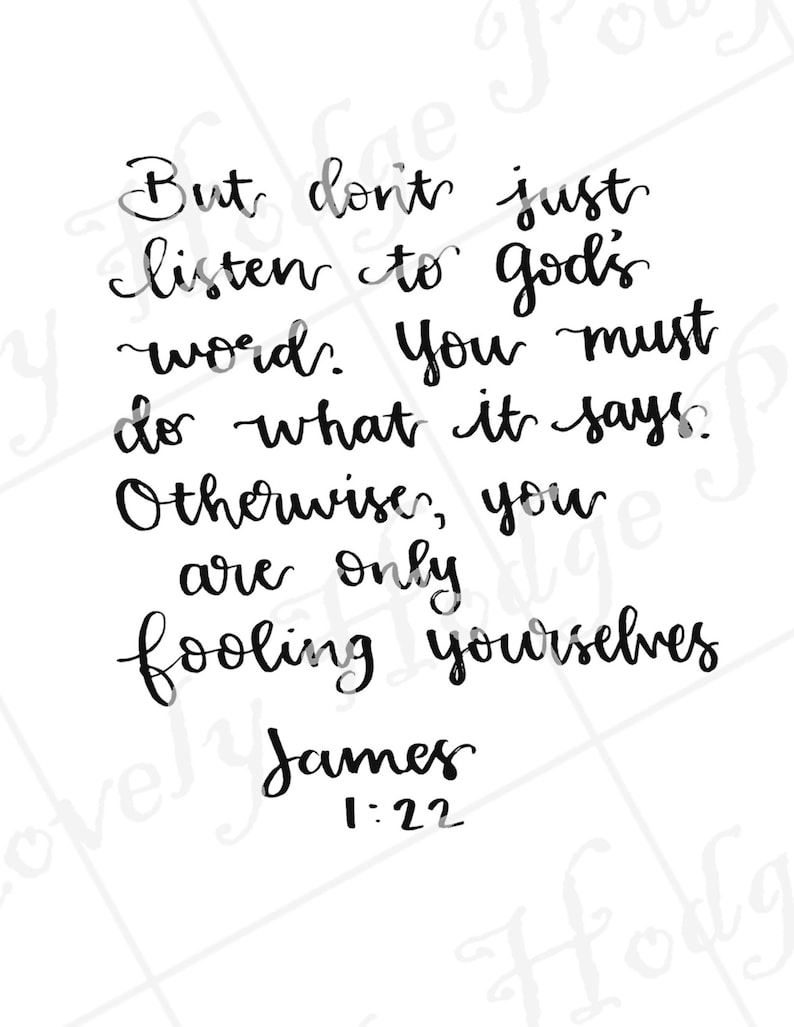 But don't just
listen to God's
word. You must
do what it says.
Otherwise, you
are only
fooling yourselves
James
1:22